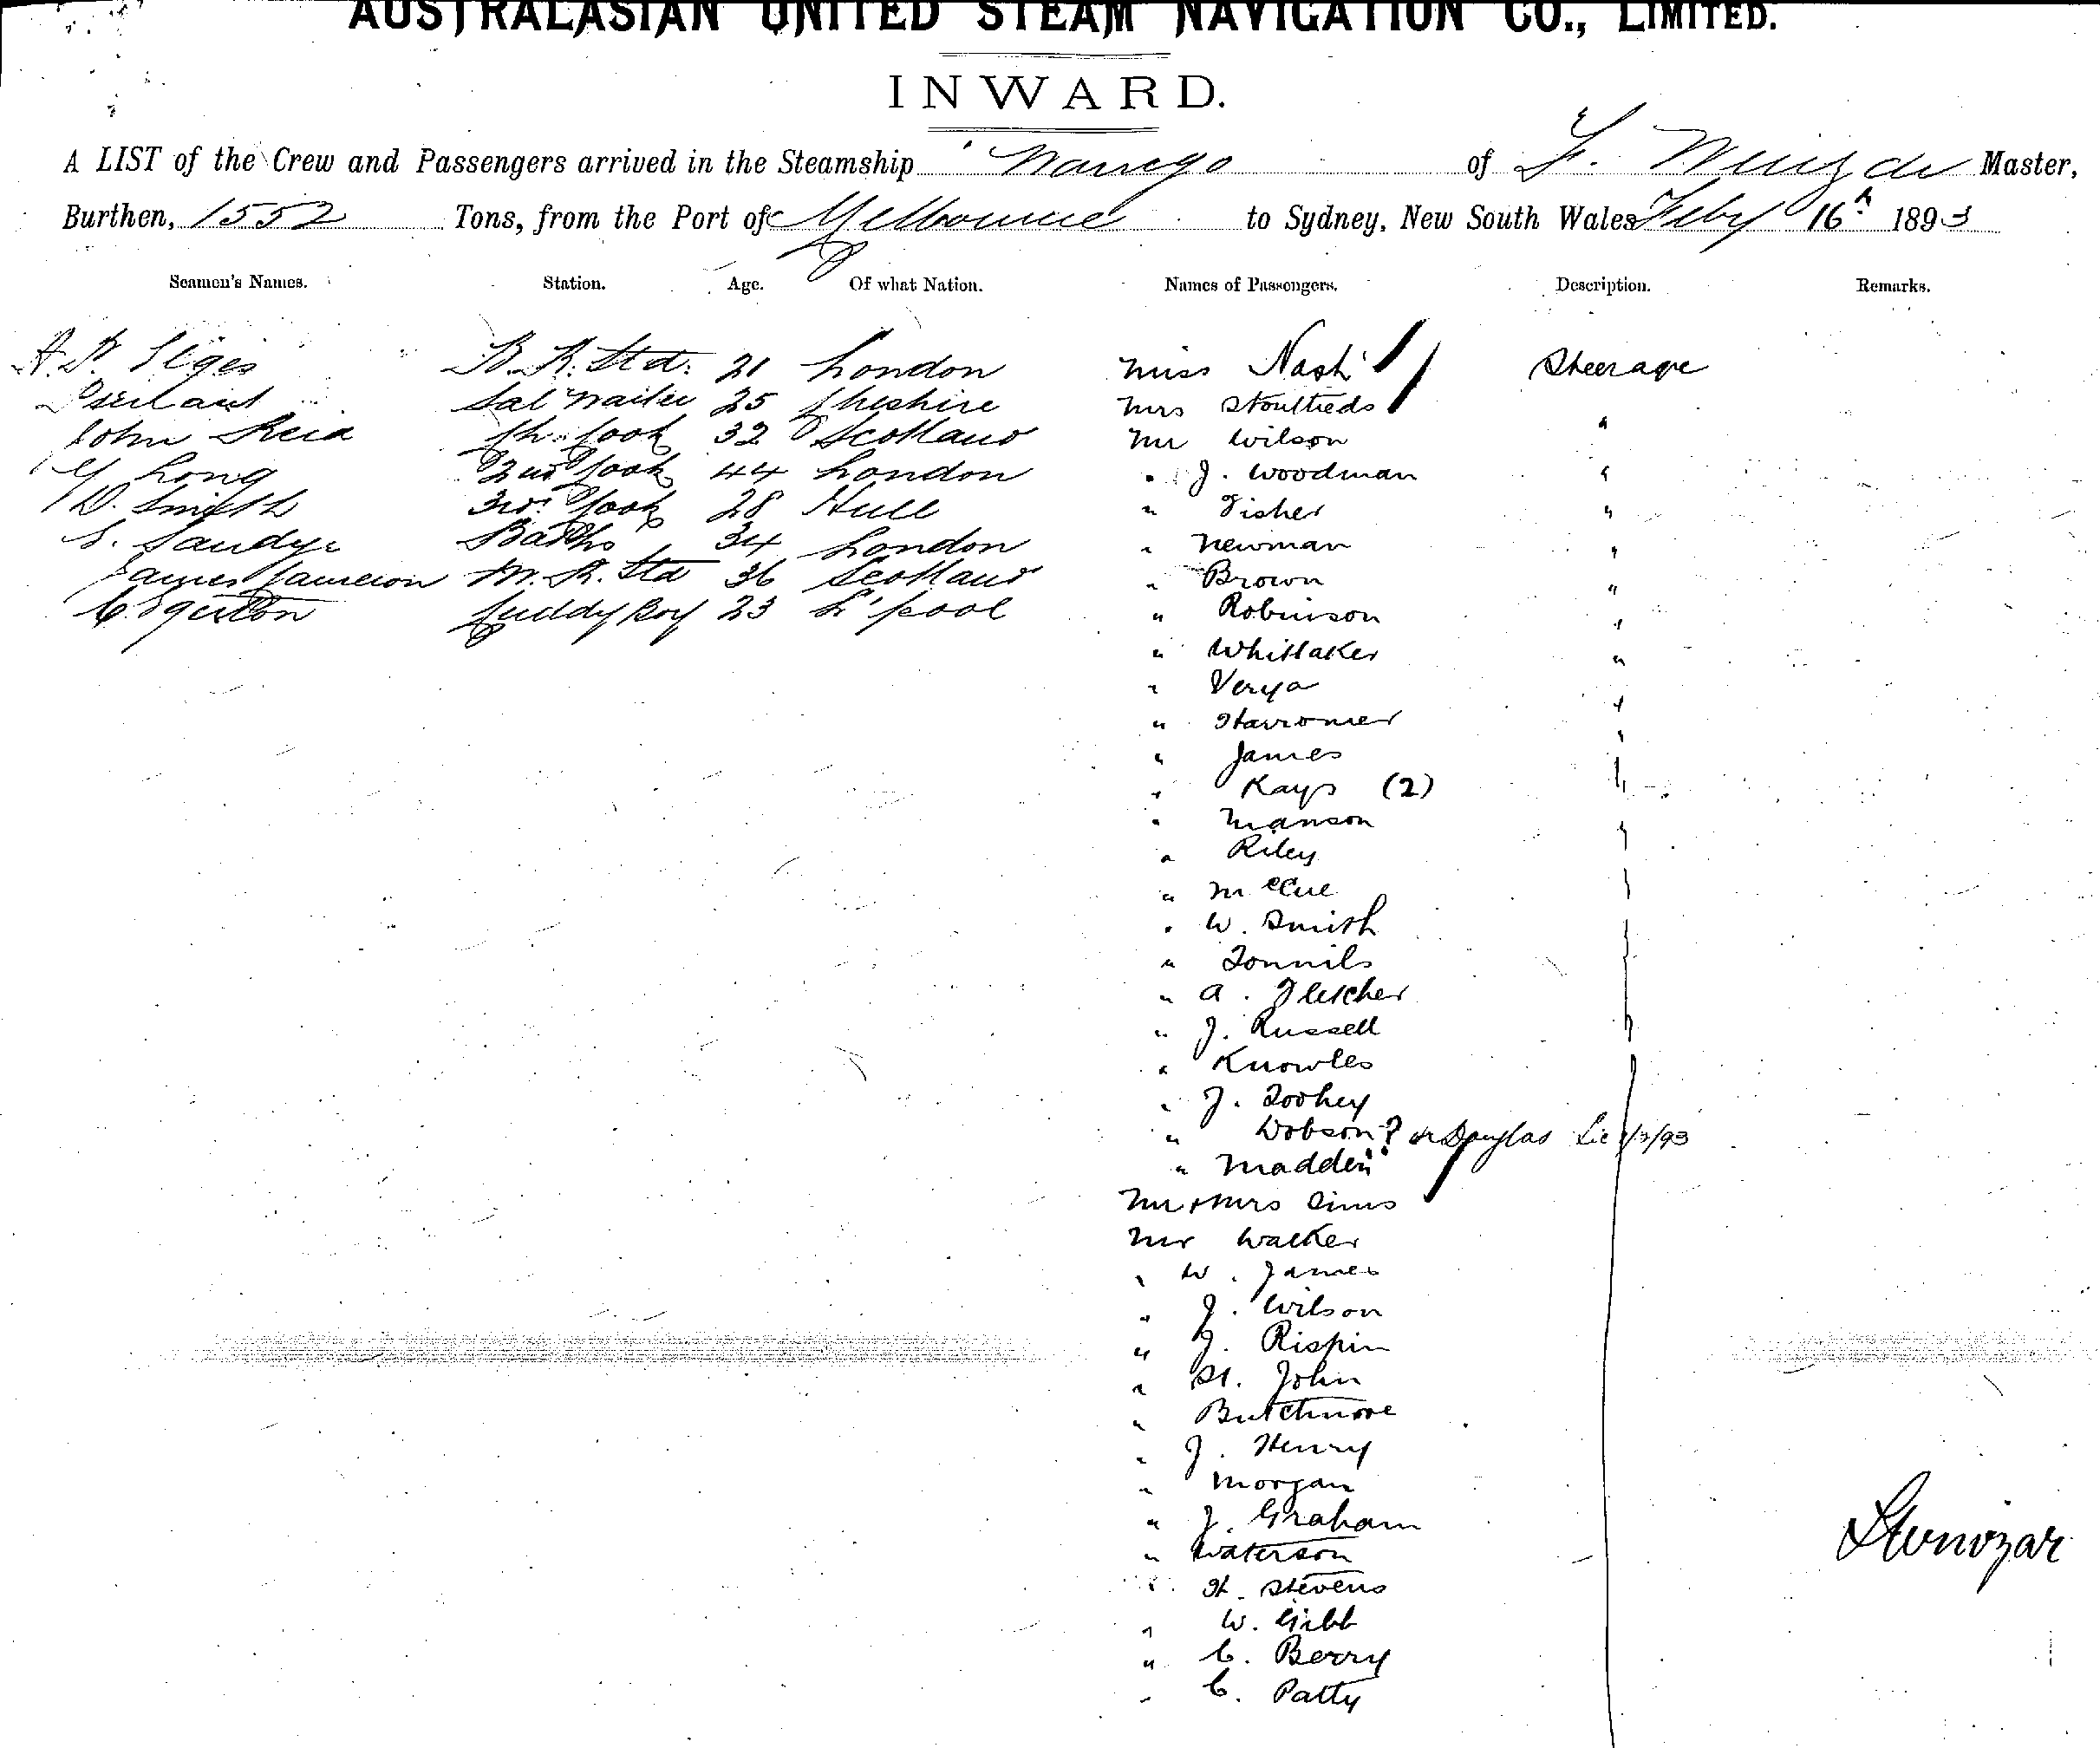 AUSTRALASIAN UNITED STEAM NAVIGATION CO., LIMITED.
INWARD.
A LIST of the Crew and Passengers arrived in the Steamship Warrego of F. Master,
Burthen, 1552 Tons, from the Port of Melbourne to Sydney, New South Wales Feby 16th 1893
Seamen's Names. Station. Age. Of what Nation. Names of Passengers. Description. Remarks.
B. R. Std. 21 London Miss Nash Steerage
Sal Waiter 25 Cheshire Mrs "
John Reid Ch. Cook 32 Scotland Mr Wilson "
Long 2nd Cook 44 London " J. Woodman "
D. Smith 3rd Cook 28 Hull " Fisher "
S. Sandys 34 London " Newman "
James Cameron M. R. Std 36 Scotland " Brown "
C Egerton Cuddy Boy 23 L'pool " Robinson "
" Whittaker "
" "
" "
" James
" Kays (2)
" Manson
" Riley
" McCue
" W. Smith
"
" A. Fletcher
" J. Russell
" Knowles
" J. Toohey
" Dobson? or Douglas
" Madden
Mr & Mrs Sims
Mr Walker
" W. James
" J. Wilson
" J. Rispin
" St. John
"
" J. Henry
" Morgan
" J. Graham
" Waterson
" H. Stevens
" W. Gibb
" C. Berry
" C. Patty